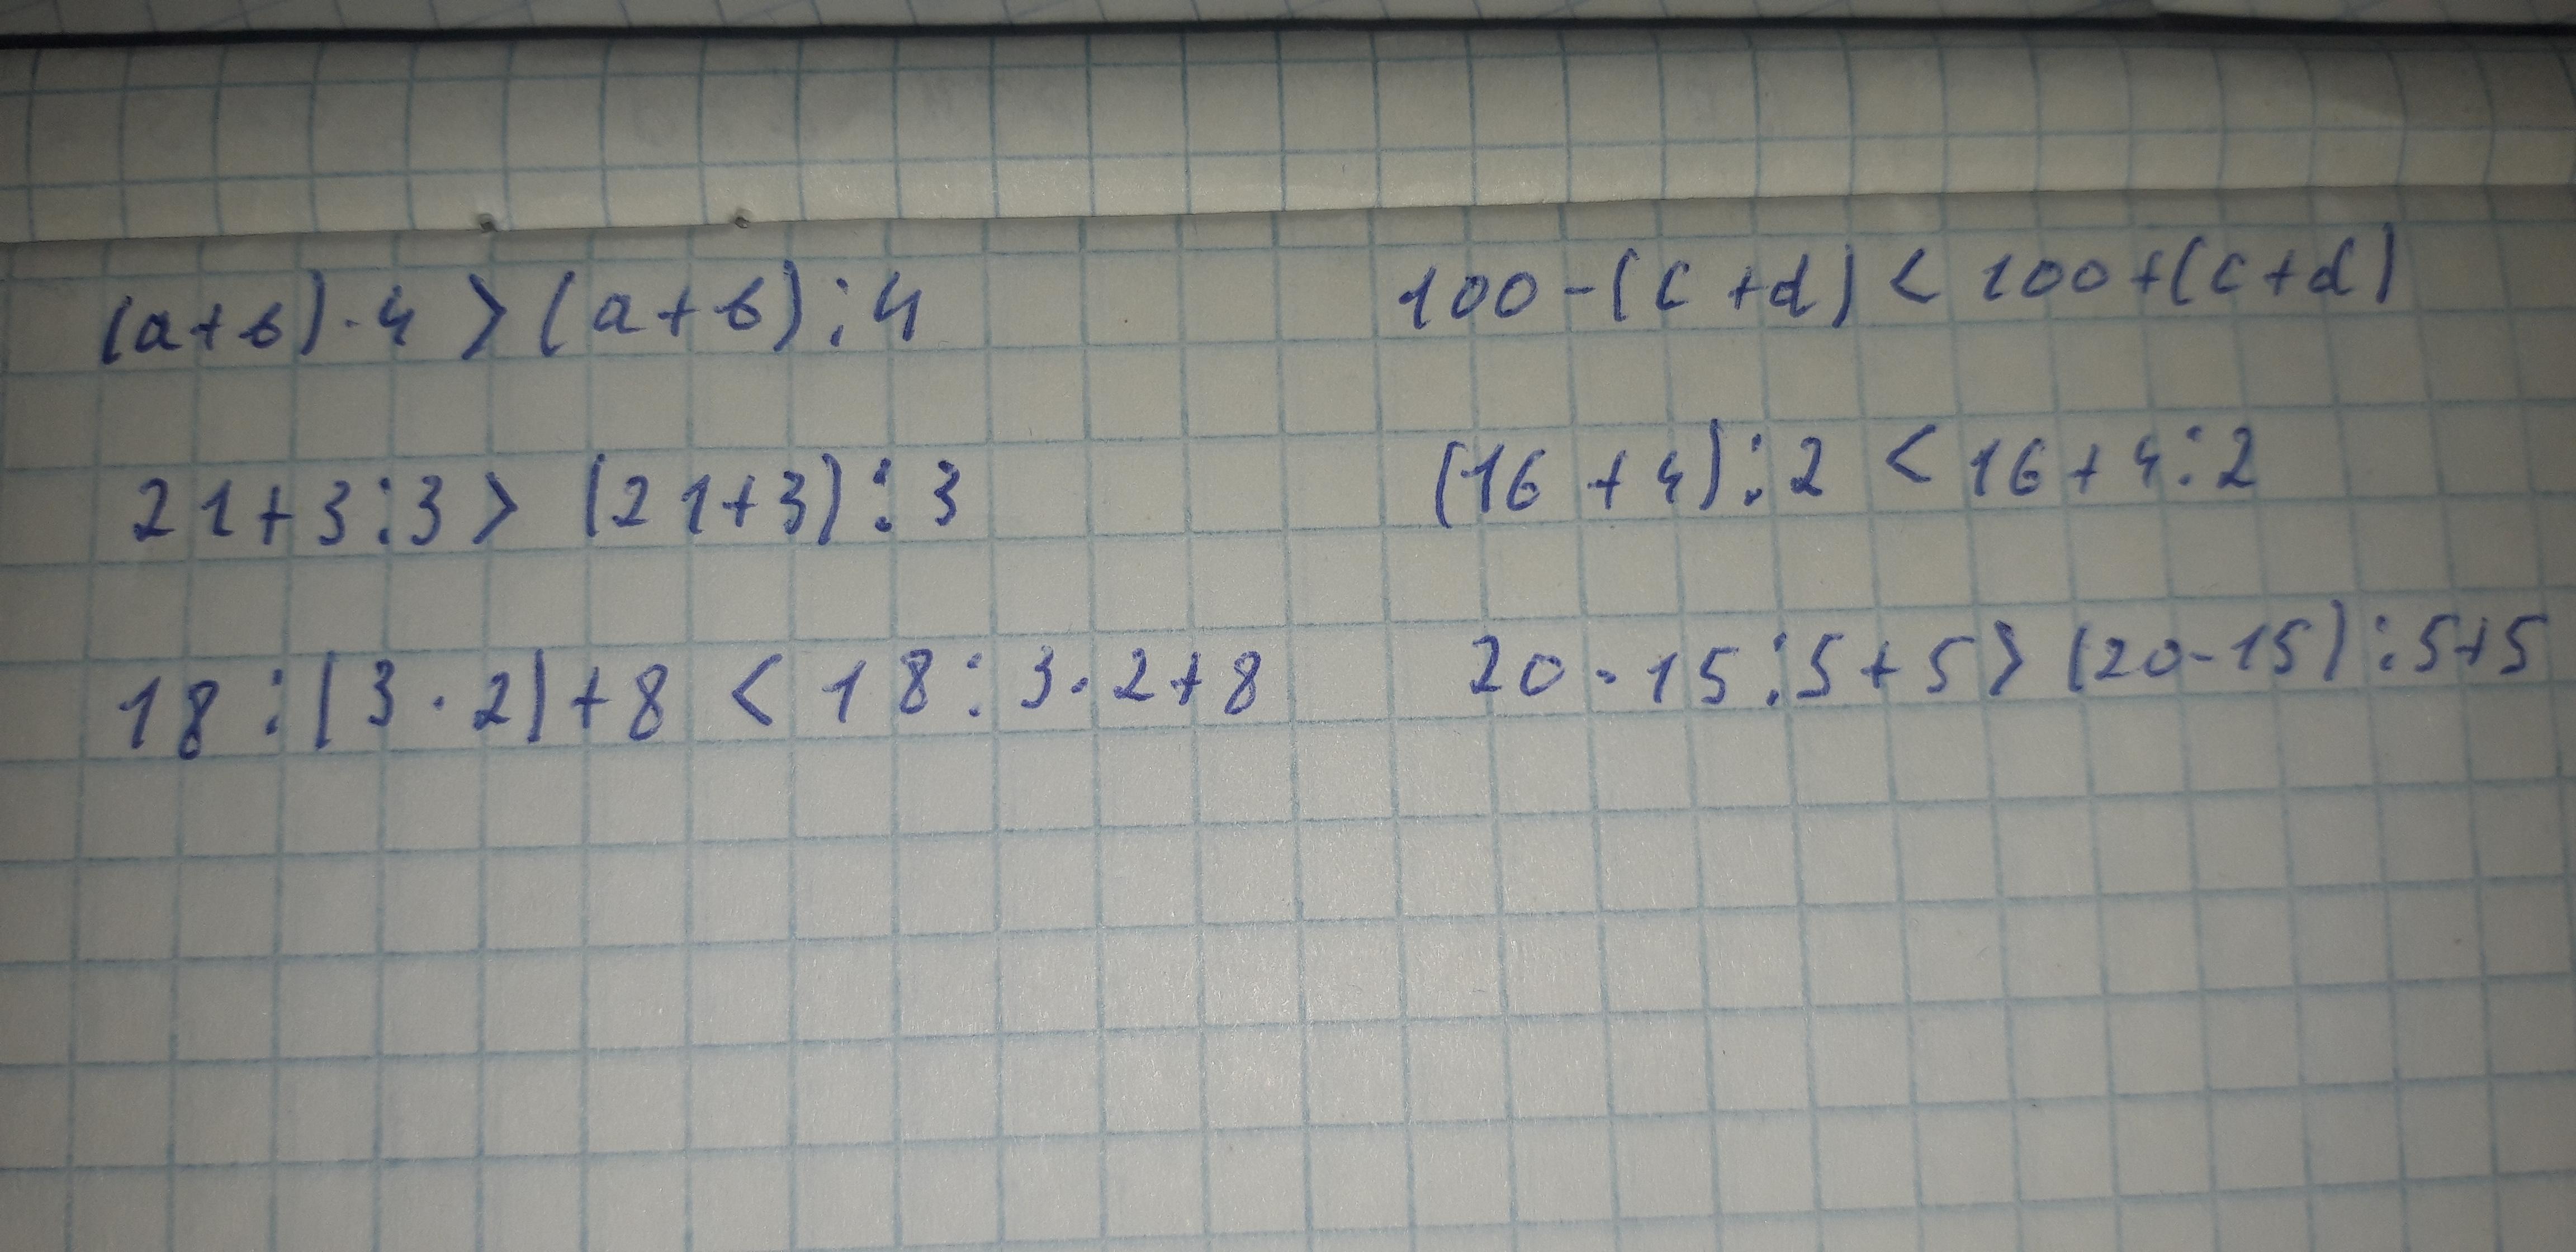 (a+в)·4 > (a+в):4 100-(c+d) < 100+(c+d)
21+3:3 > (21+3):3 (16+4):2 < 16+4:2
18:(3·2)+8 < 18:3·2+8 20-15:5+5 > (20-15):5+5